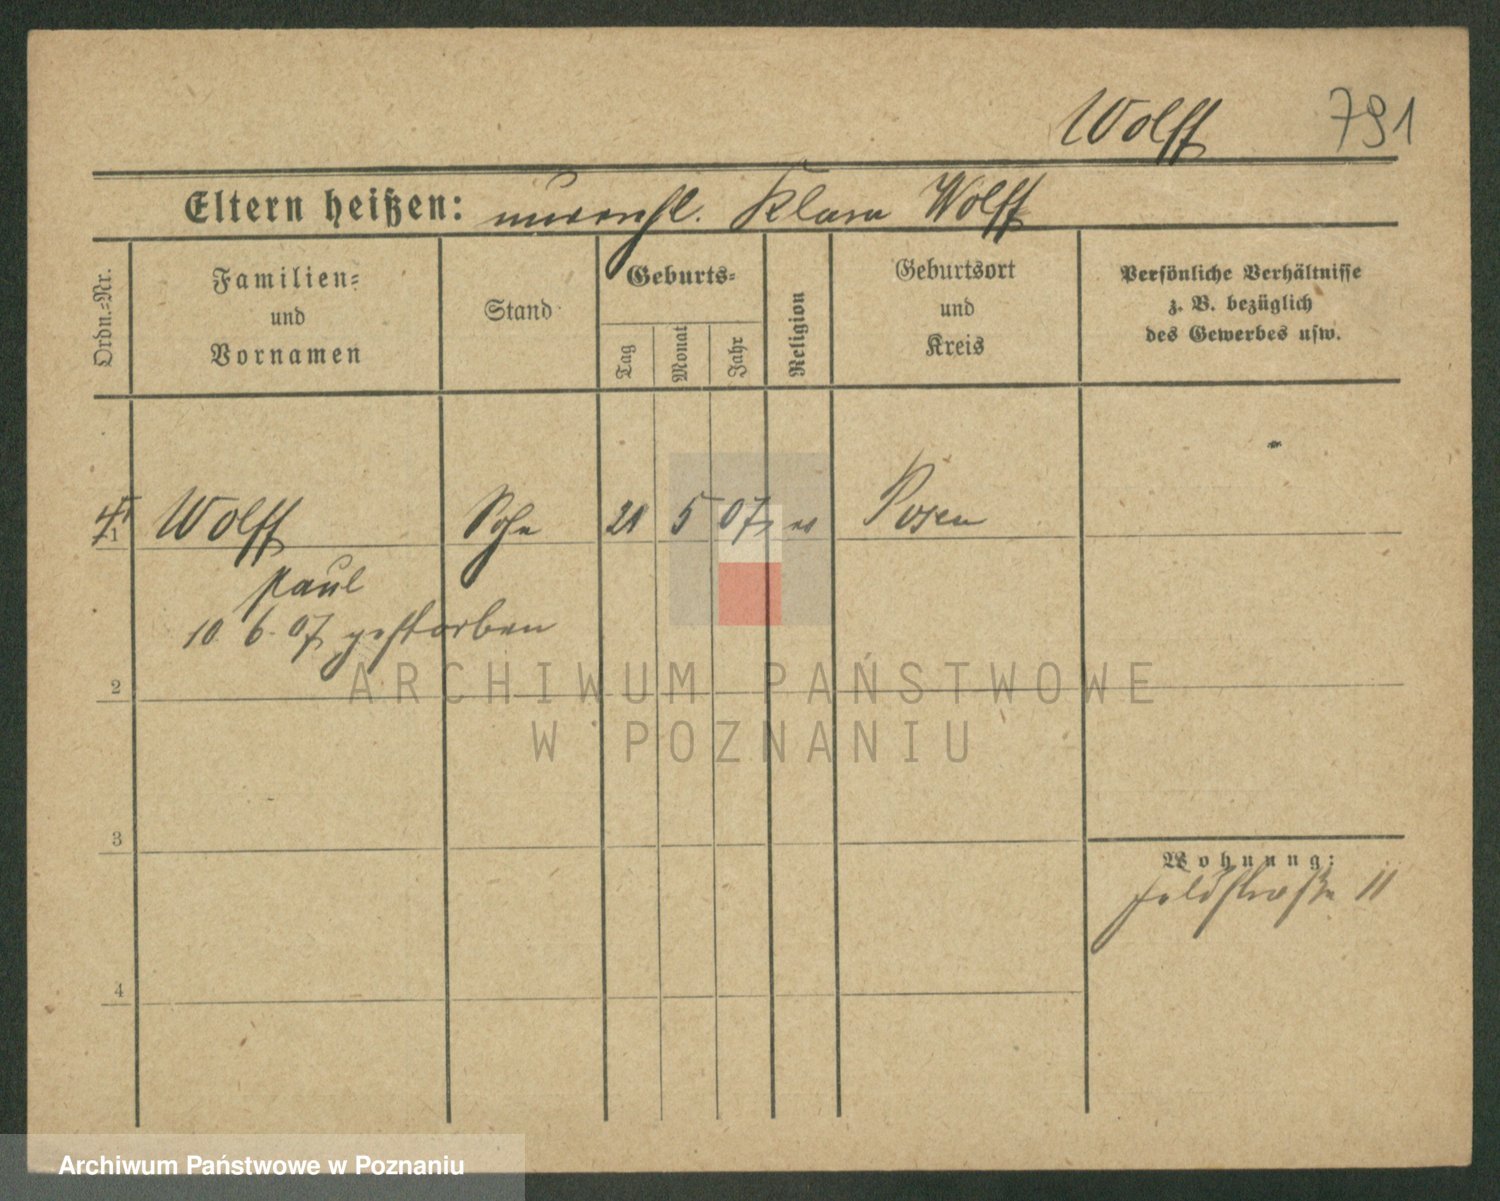 Wolff 791
Eltern heißen: unverehl. Klara Wolff
Ordn.-Nr.
Familien-
und
Vornamen
Stand
Geburts-
Tag
Monat
Jahr
Religion
Geburtsort
und
Kreis
Persönliche Verhältnisse
z. B. bezüglich
des Gewerbes usw.
1 Wolff Sohn 21 5 07 ev Posen
Paul
10 6. 07 gestorben
2
3
4
Wohnung:
Feldstraße 11
ARCHIWUM PAŃSTWOWE
W POZNANIU
Archiwum Państwowe w Poznaniu